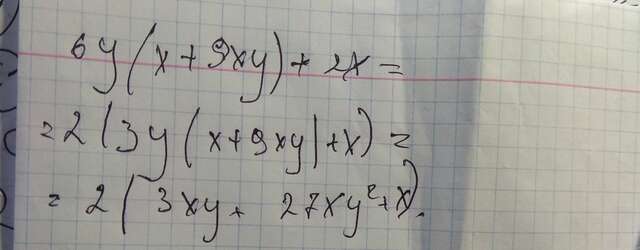 6y(x+9xy)+2x=
=2(3y(x+9xy)+x)=
=2(3xy+27xy²+x).